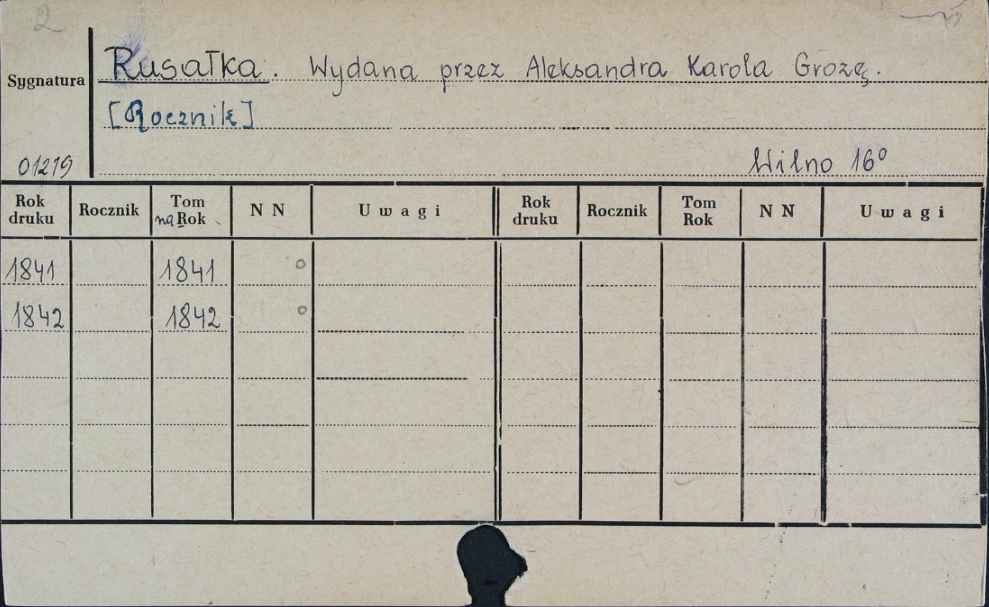 2
Rusałka. Wydana przez Aleksandra Karola Grozę.
Sygnatura
[Rocznik]
01219
Wilno 16°
Rok druku Rocznik Tom na Rok N N Uwagi Rok druku Rocznik Tom Rok N N Uwagi
1841 1841 o
1842 1842 o